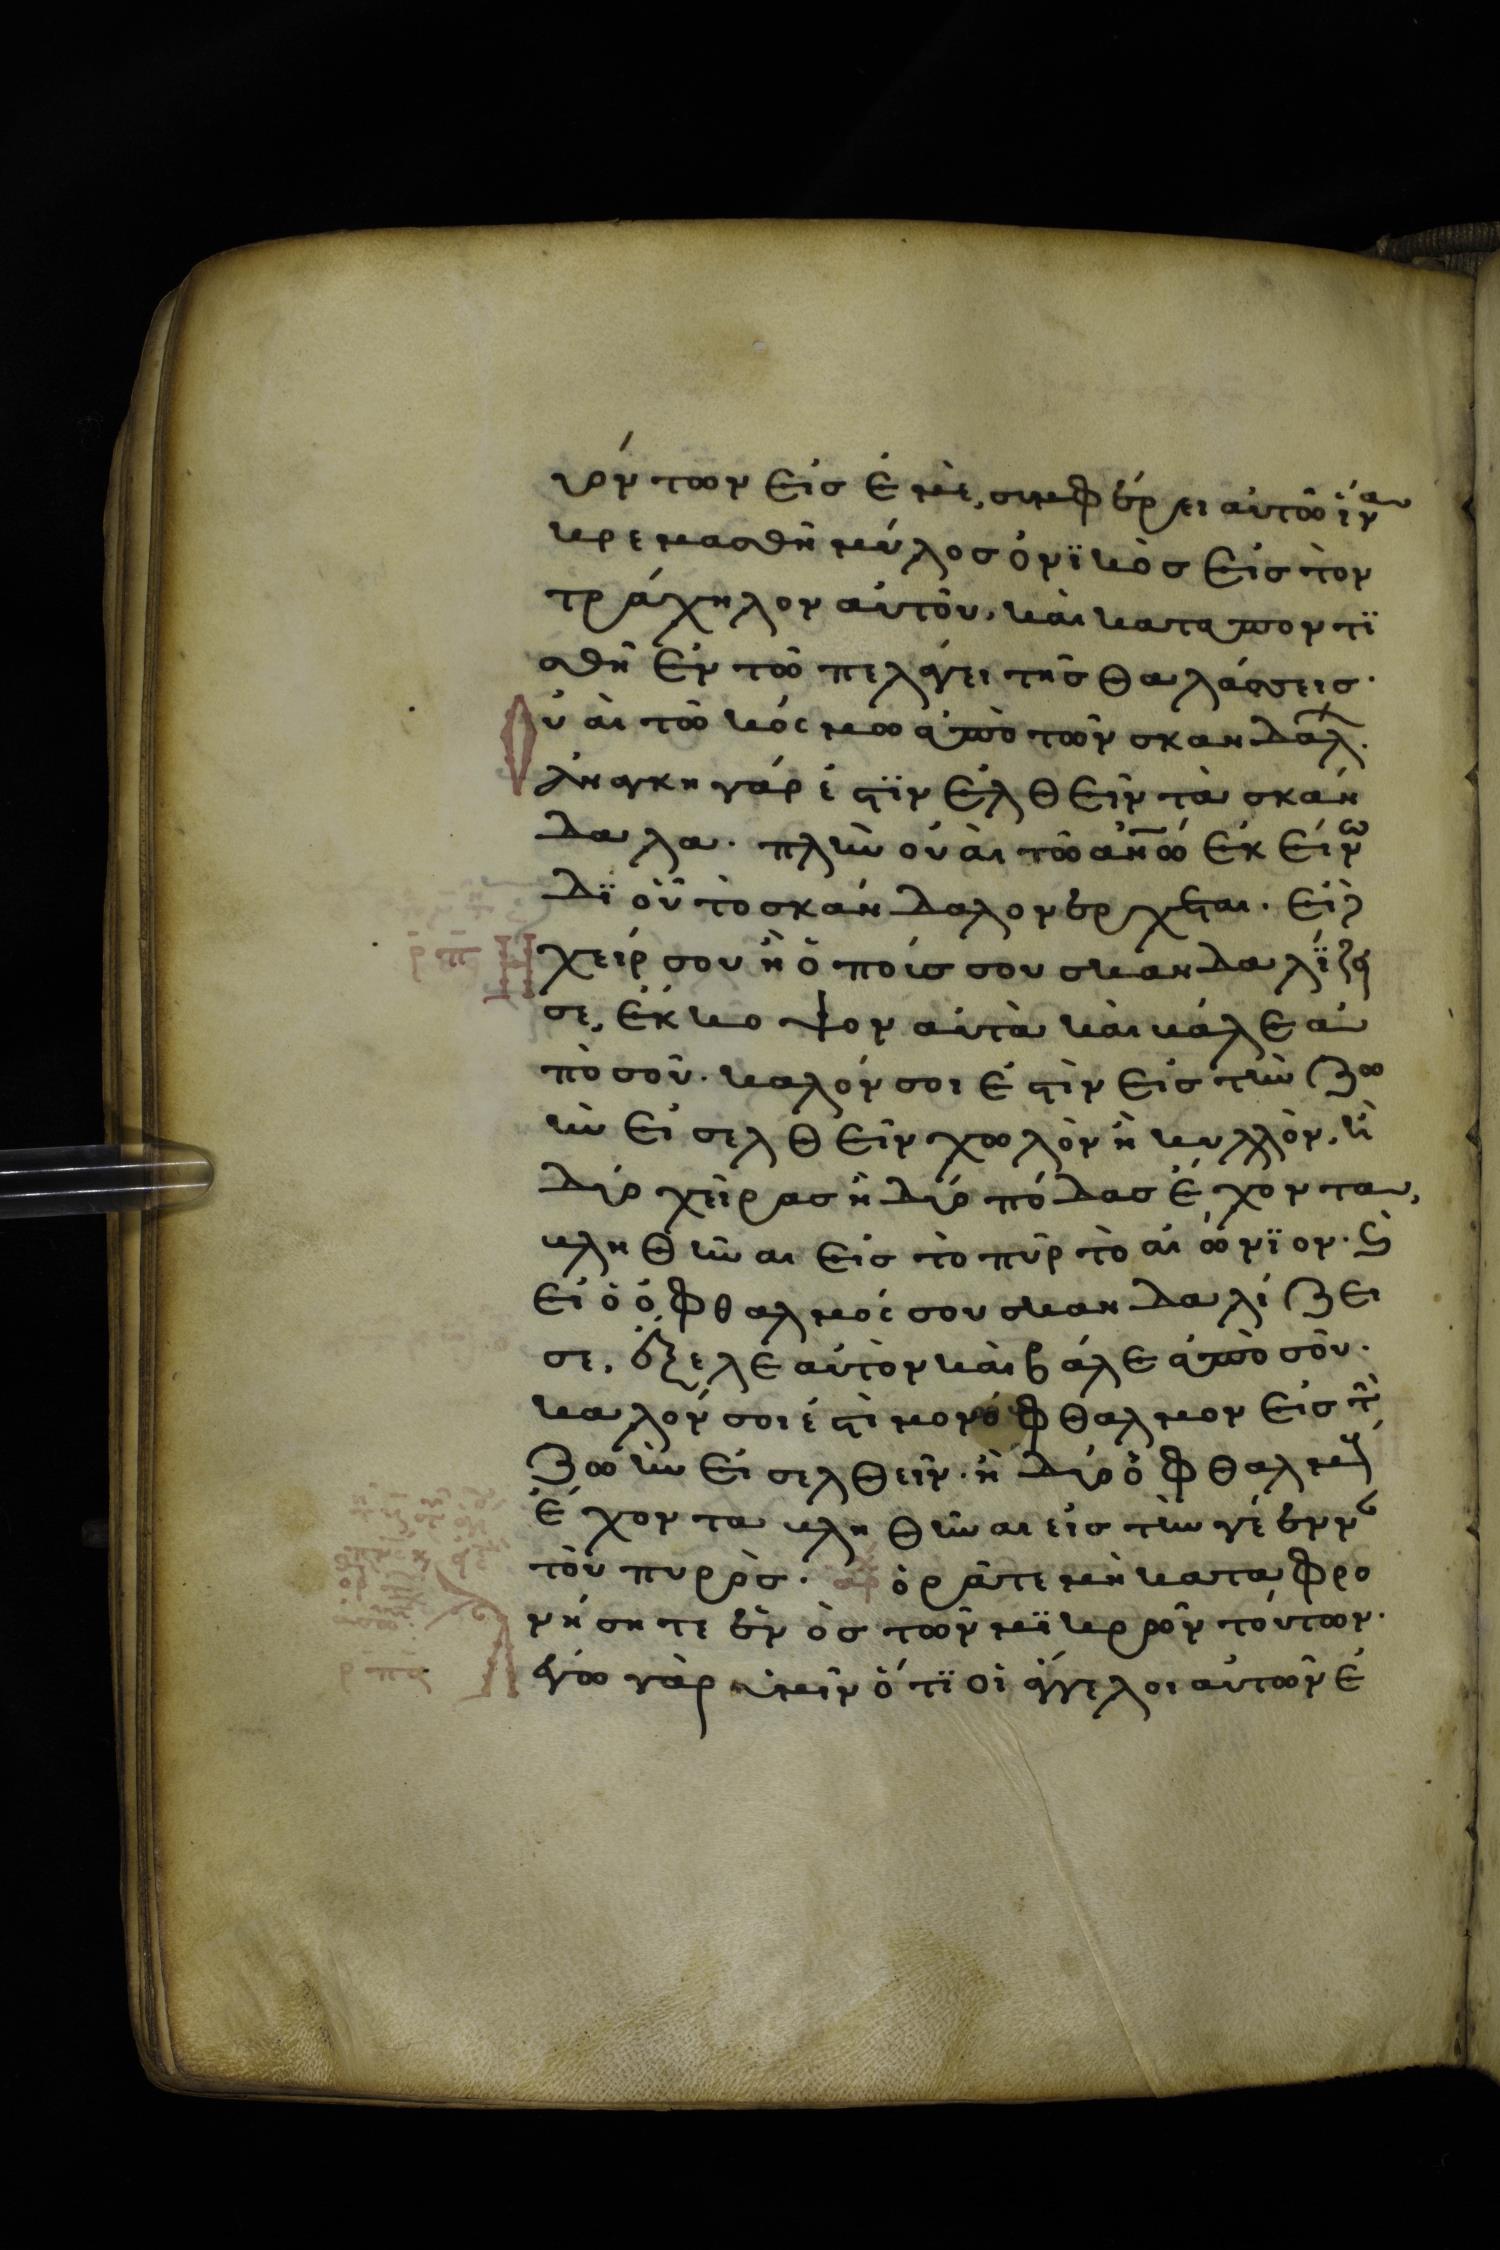 όντων εἰς ἐμὲ, συμφέρει αὐτῶ ἵνα
κρεμασθῆ μύλος ὀνϊκὸς εἰς τὸν
τράχηλον αὐτοῦ, καὶ καταποντϊ
σθῆ ἐν τῶ πελάγει τῆς θαλάσσεις·
ὐαὶ τῶ κόσμω ἀπὸ τῶν σκανδάλ·
ἀνάγκη γάρ ἐστϊν ἐλθεῖν τὰ σκάν
δαλα· πλὴν οὐαὶ τῶ ανω ἐκείνω
δϊ οὗ τὸ σκάνδαλον έρχεται· Εἰ ἡ
χείρ σου ἢ ὁ ποίς σου σκανδαλΐζει
σε, ἔκκοψον αὐτὰ καὶ κάλε ἀ
πὸ σοῦ· καλόν σοι ἐστὶν εἰς τὴν ζω
ὴν εἰσελθεῖν χωλὸν ἢ κυλλὸν, ἢ
δύο χεῖρας ἢ δύο πόδας ἔχοντα,
κληθῆναι εἰς τὸ πῦρ τὸ αἰώνϊον· καὶ
εἰ ὁ ὀφθαλμός σου σκανδαλίζει
σε, ἔξελε αὐτὸν καὶ βάλε ἀπὸ σοῦ·
καλόν σοι ἐστὶ μονόφθαλμον εἰς τὴν
ζωὴν εἰσελθεῖν· ἢ δύο ὀφθαλμοὺς
ἔχοντα κληθῆναι εἰς τὴν γέενναν
τοῦ πυρὸς· αρχ ὁρᾶτε μὴ καταφρο
νήσητε ἑνὸς τῶν μϊκρῶν τούτων·
λέγω γὰρ ὑμῖν ὅτϊ οἱ ἄγγελοι αὐτῶν ἐ